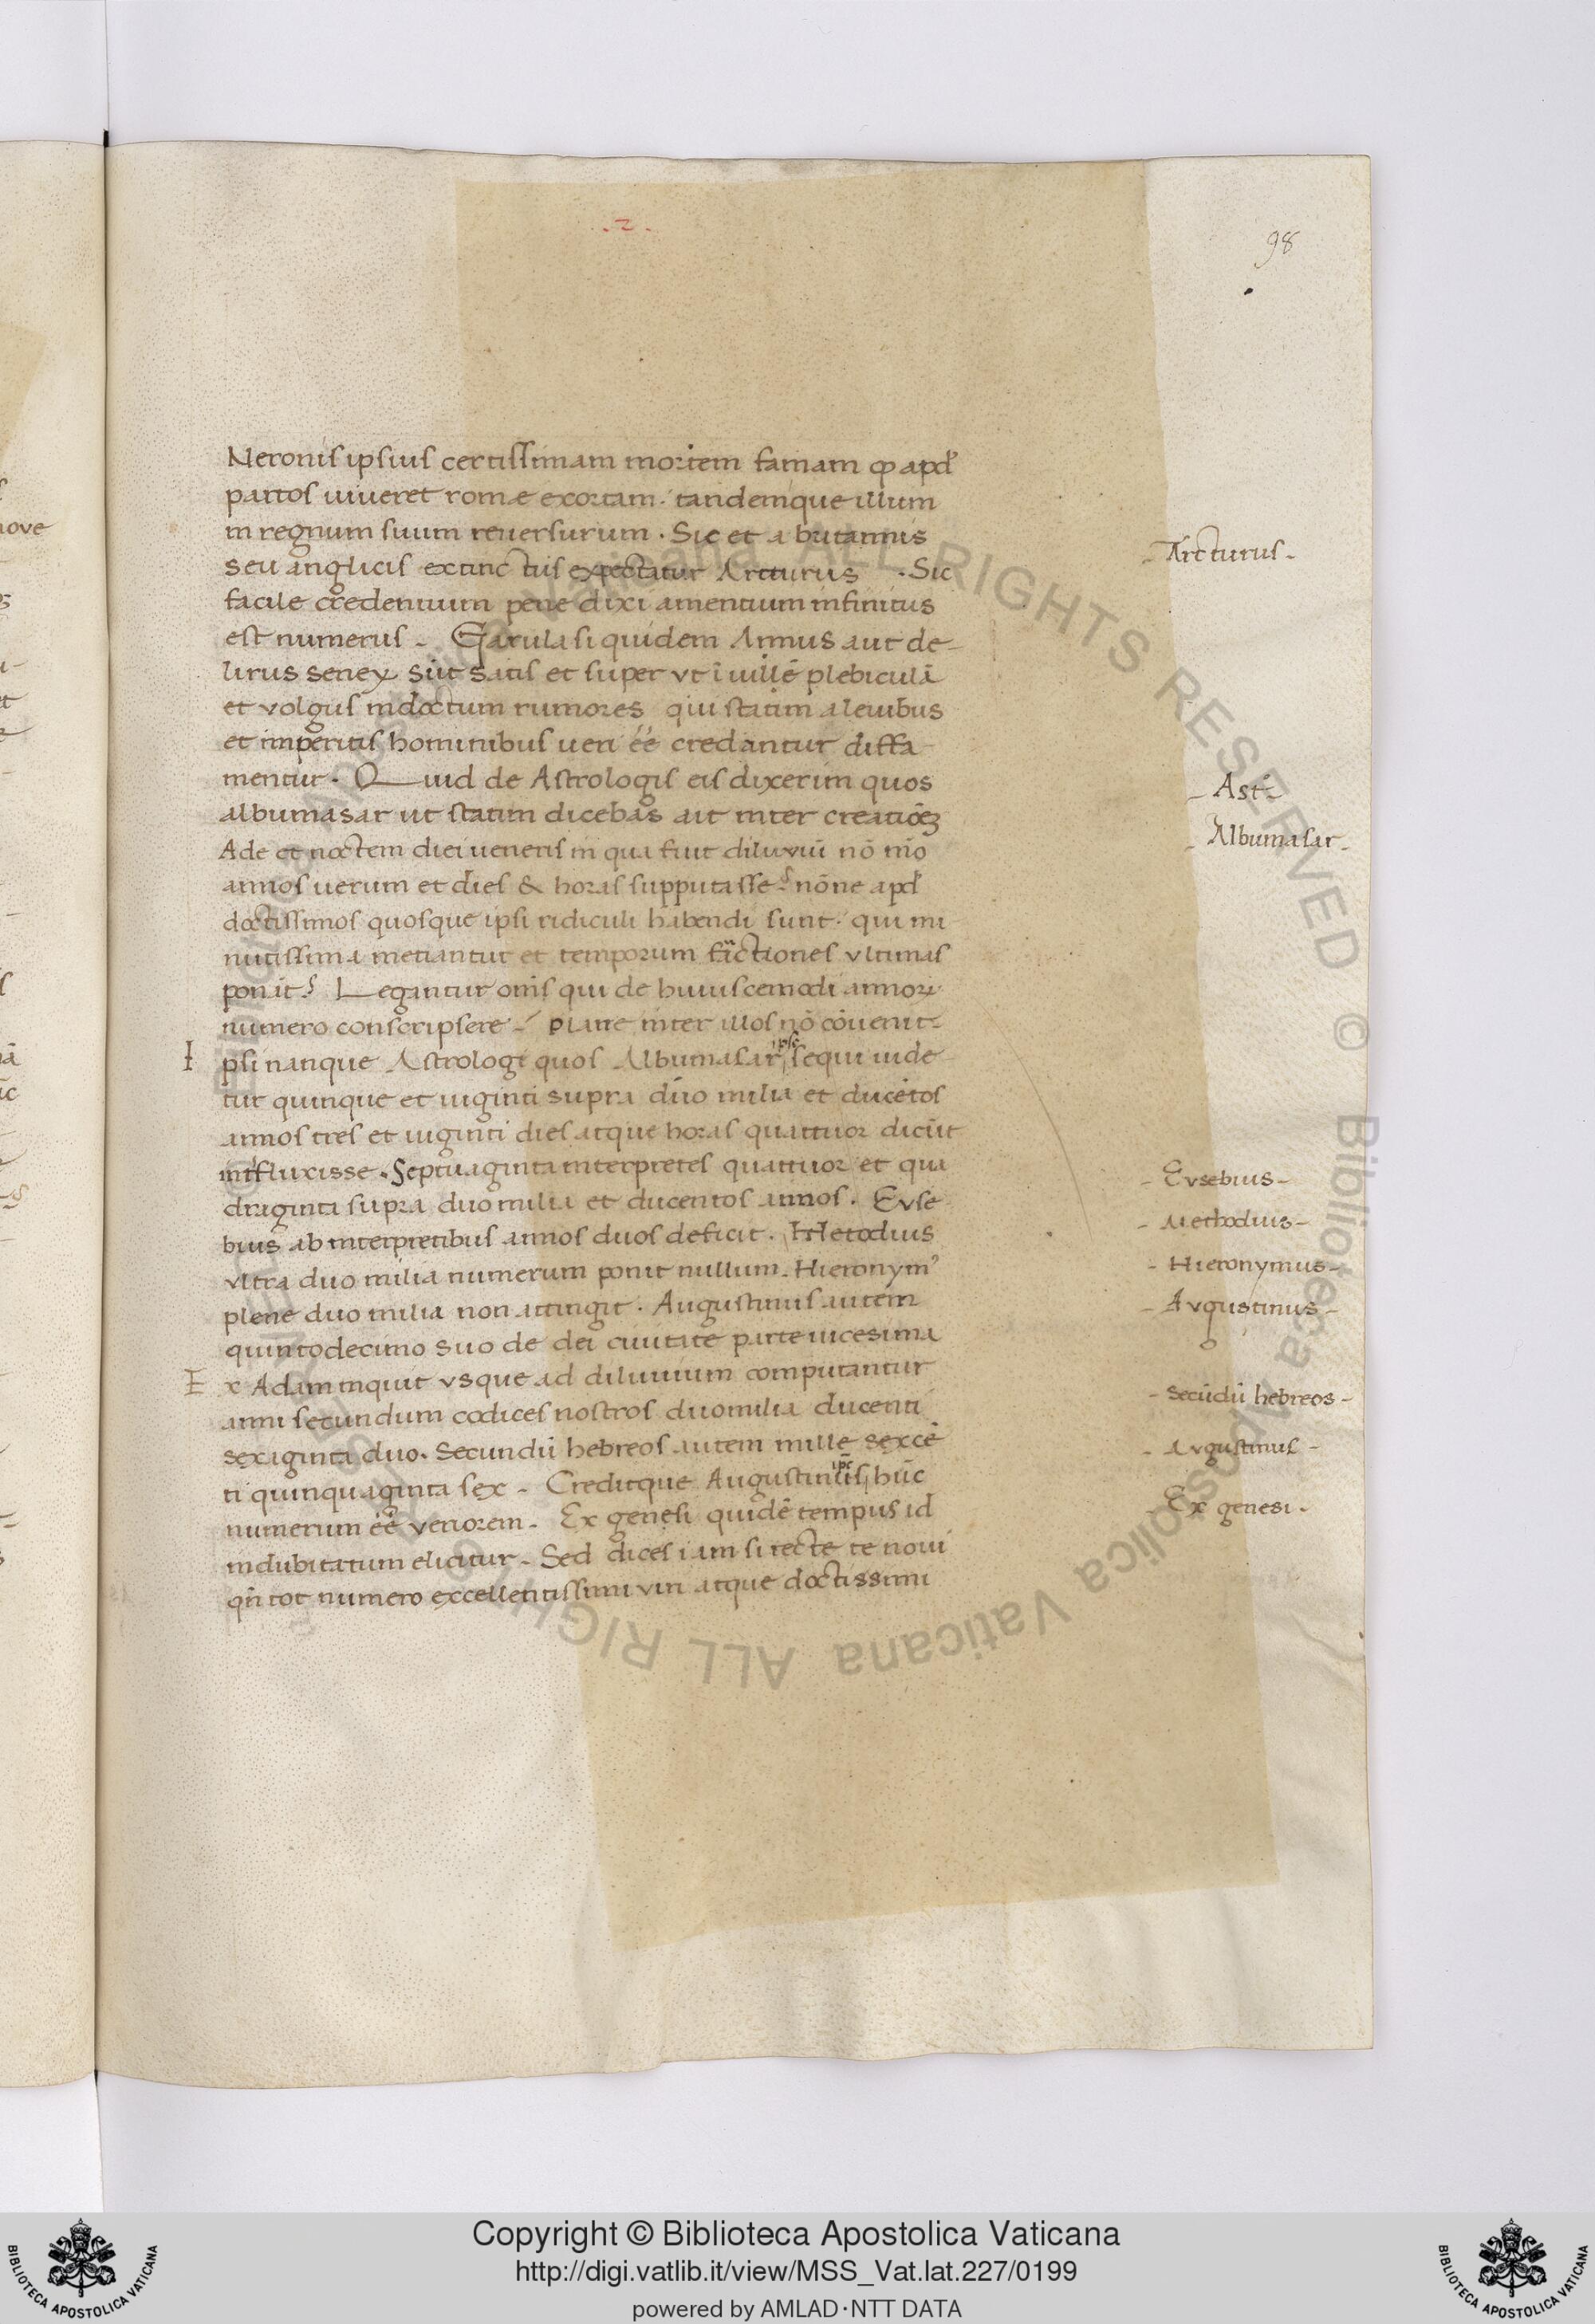 .2.
98
Neronis ipsius certissimam mortem famam ꝙ apd̛
partos uiueret romæ exortam. tandemque illum
in regnum suum reuersurum. Sic et a britannis
seu anglicis extinctus expectatur Arcturus . Sic
facile credentium pene dixi amentium infinitus
est numerus - Garula siquidem Annus aut de-
lirus senex sūt satis et super vt ī uillē plebiculā
et volgus indoctum rumores qui statim a leuibus
et imperitis hominibus ueri éé credantur diffa
mentur. Quid de Astrologis eis dixerim quos
albumasar ut statim dicebas ait inter creatiōꝫ
Ade et noctem diei ueneris in qua fuit diluuiū nō mō
annos uerum et dies & horas supputasse? nōne apd̛
doctissimos quosque ipsi ridiculi habendi sunt. qui mi
nutissima metiantur et temporum fractiones vltimas
ponāt? Legantur om̄s qui de huiuscemodi annorꝝ
numero conscripsere - plane inter illos nō cōuenit-
I psi nanque Astrologi quos Albumasar ipse sequi uide
tur quinque et uiginti supra duo milia et ducētos
annos tres et uiginti dies atque horas quattuor dicūt
influxisse. Septuaginta interpretes quattuor et qua
draginta supra duo milia et ducentos annos. Euse
bius ab interpretibus annos duos deficit. Metodius
vltra duo milia numerum ponit nullum. Hieronymꝰ
plene duo milia non attingit. Augustinus autem
quintodecimo suo de dei ciuitate parte uicesima
E x Adam inquit vsque ad diluuium computantur
anni secundum codices nostros duomilia ducenti
sexaginta duo. Secundū hebreos autem mille sexcē
ti quinquaginta sex - Creditque Augustinus ip̄e hūc
numerum éé veriorem - Ex genesi quidē tempus id
indubitatum elicitur - Sed dices iam si recte te noui
qn̄ tot numero excellentissimi viri atque doctissimi
- Arcturus -
- Ast -
- Albumasar -
- Eusebius -
- Methodius -
- Hieronymus -
- Augustinus -
- Secūdū hebreos -
- Augustinus -
- Ex genesi -
Copyright © Biblioteca Apostolica Vaticana
http://digi.vatlib.it/view/MSS_Vat.lat.227/0199
powered by AMLAD·NTT DATA
BIBLIOTECA APOSTOLICA VATICANA
BIBLIOTECA APOSTOLICA VATICANA